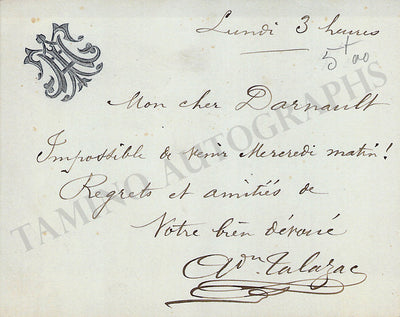 Lundi 3 heures
5.00
Mon cher Darnault
Impossible de venir Mercredi matin!
Regrets et amitiés de
Votre bien dévoué
Adn. Talazac
TAMINO AUTOGRAPHS